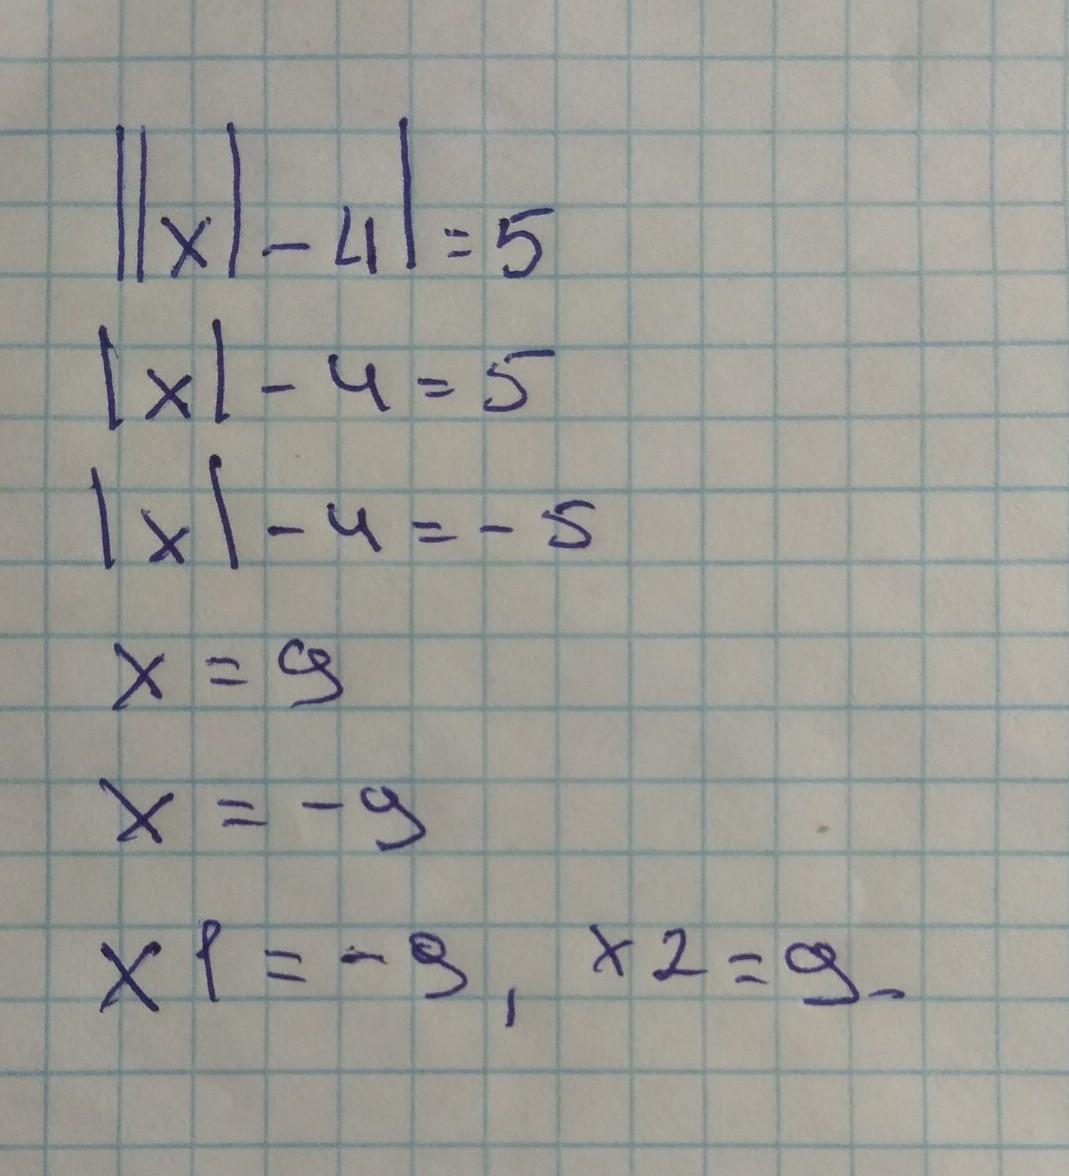 ||x|-4|=5
|x|-4=5
|x|-4=-5
x=9
x=-9
x1=-9, x2=9.